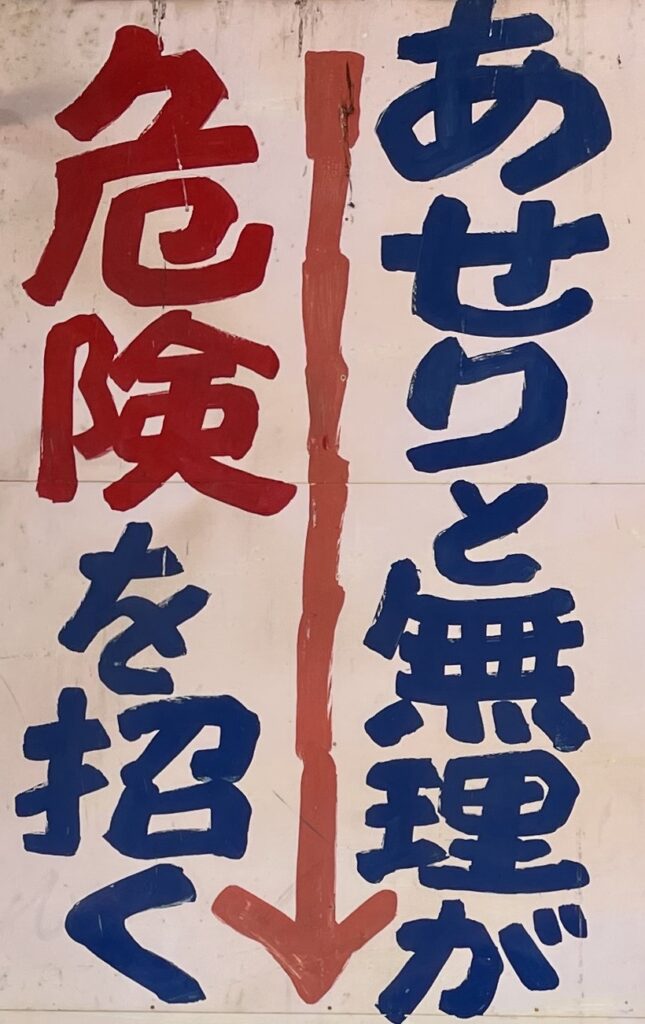 あせりと無理が
危険を招く